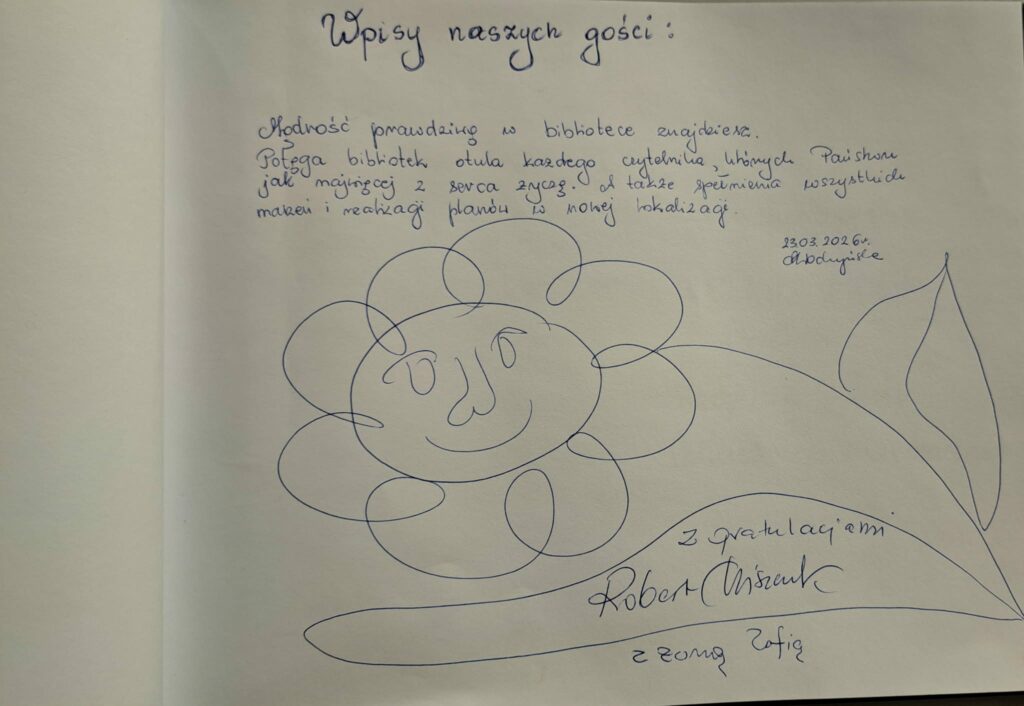 Wpisy naszych gości:
Mądrość prawdziwą w bibliotece znajdziesz.
Potęga bibliotek otula każdego czytelnika, których Państwu
jak najwięcej z serca życzę. A także spełnienia wszystkich
marzeń i realizacji planów w nowej lokalizacji.
23.03.2026r.
z gratulacjami
Robert
z żoną Zofią